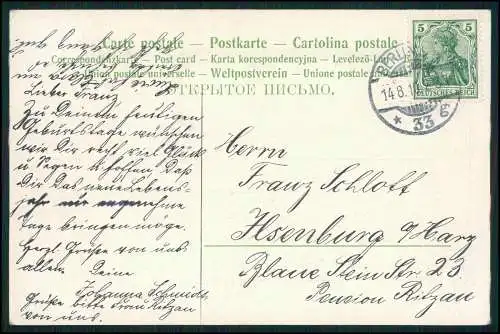 Carte postale – Postkarte – Cartolina postale
Correspondenzkarte – Post card – Karta korespondencyjna – Levelező-L
Union postale universelle – Weltpostverein – Unione postale
ОТКРЫТОЕ ПИСЬМО.
5 5
DEUTSCHES REICH
14.8.1
* 33 g
Lieber Franz
Zu Deinem heutigen
Geburtstage wünschen
wir Dir recht viel Glück
u Segen u hoffen, daß
Dir das neue Lebens-
jahr nur angenehme
Tage bringen möge.
Herzl Grüße von uns
allen. Deine
Johanna Schmidt
Grüße bitte Frau Ritzau
von uns.
Herrn
Franz Schloft
Ilsenburg a/Harz
Blaue Stein Str 23
Pension Ritzau